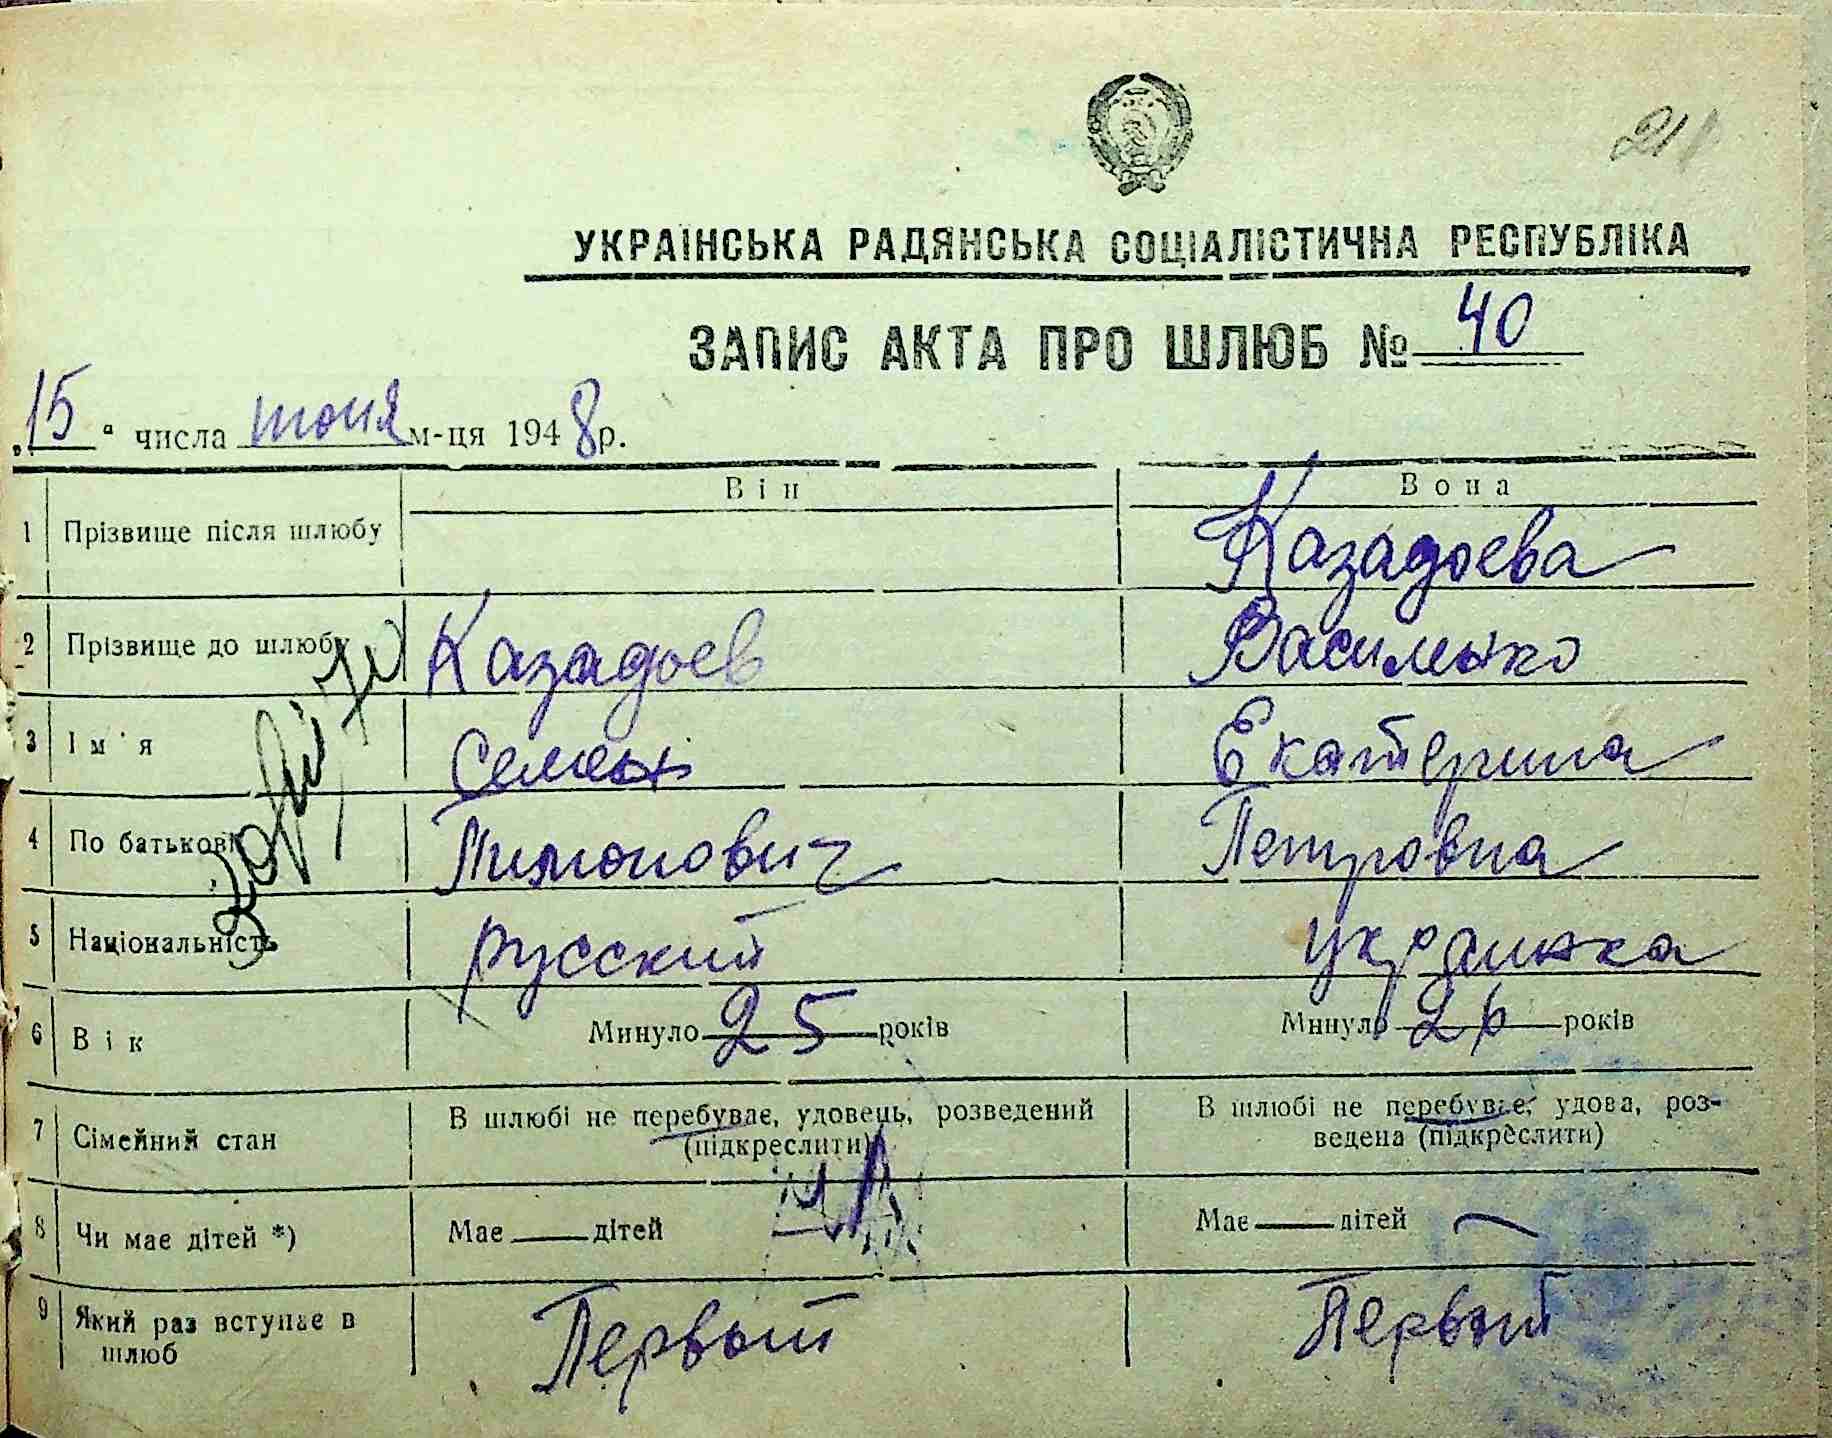 21
УКРАЇНСЬКА РАДЯНСЬКА СОЦІАЛІСТИЧНА РЕСПУБЛІКА
ЗАПИС АКТА ПРО ШЛЮБ № 40
„15“ числа июня м-ця 1948 р.
Він Вона
1 Прізвище після шлюбу Казадоева
2 Прізвище до шлюбу Казадоев Василенко
3 Ім'я Семен Екатерина
4 По батькові Пимонович Петровна
5 Національність русский украинка
6 Вік Минуло 25 років Минуло 26 років
7 Сімейний стан В шлюбі не перебуває, удовець, розведений (підкреслити) В шлюбі не перебуває, удова, роз-
ведена (підкреслити)
8 Чи має дітей *) Має — дітей Має — дітей —
9 Який раз вступає в шлюб Первый Первый